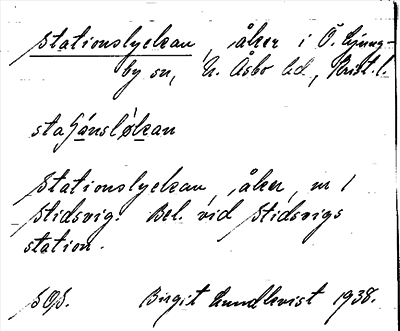 Stationslyckan, åker i Ö. Ljung-
by sn, N. Åsbo hd, Krist. l.
Stationslyckan, åker, nr 1
Stidsvig. Bel. vid Stidsvigs
station.
SOS. Birgit Lundkvist 1938.